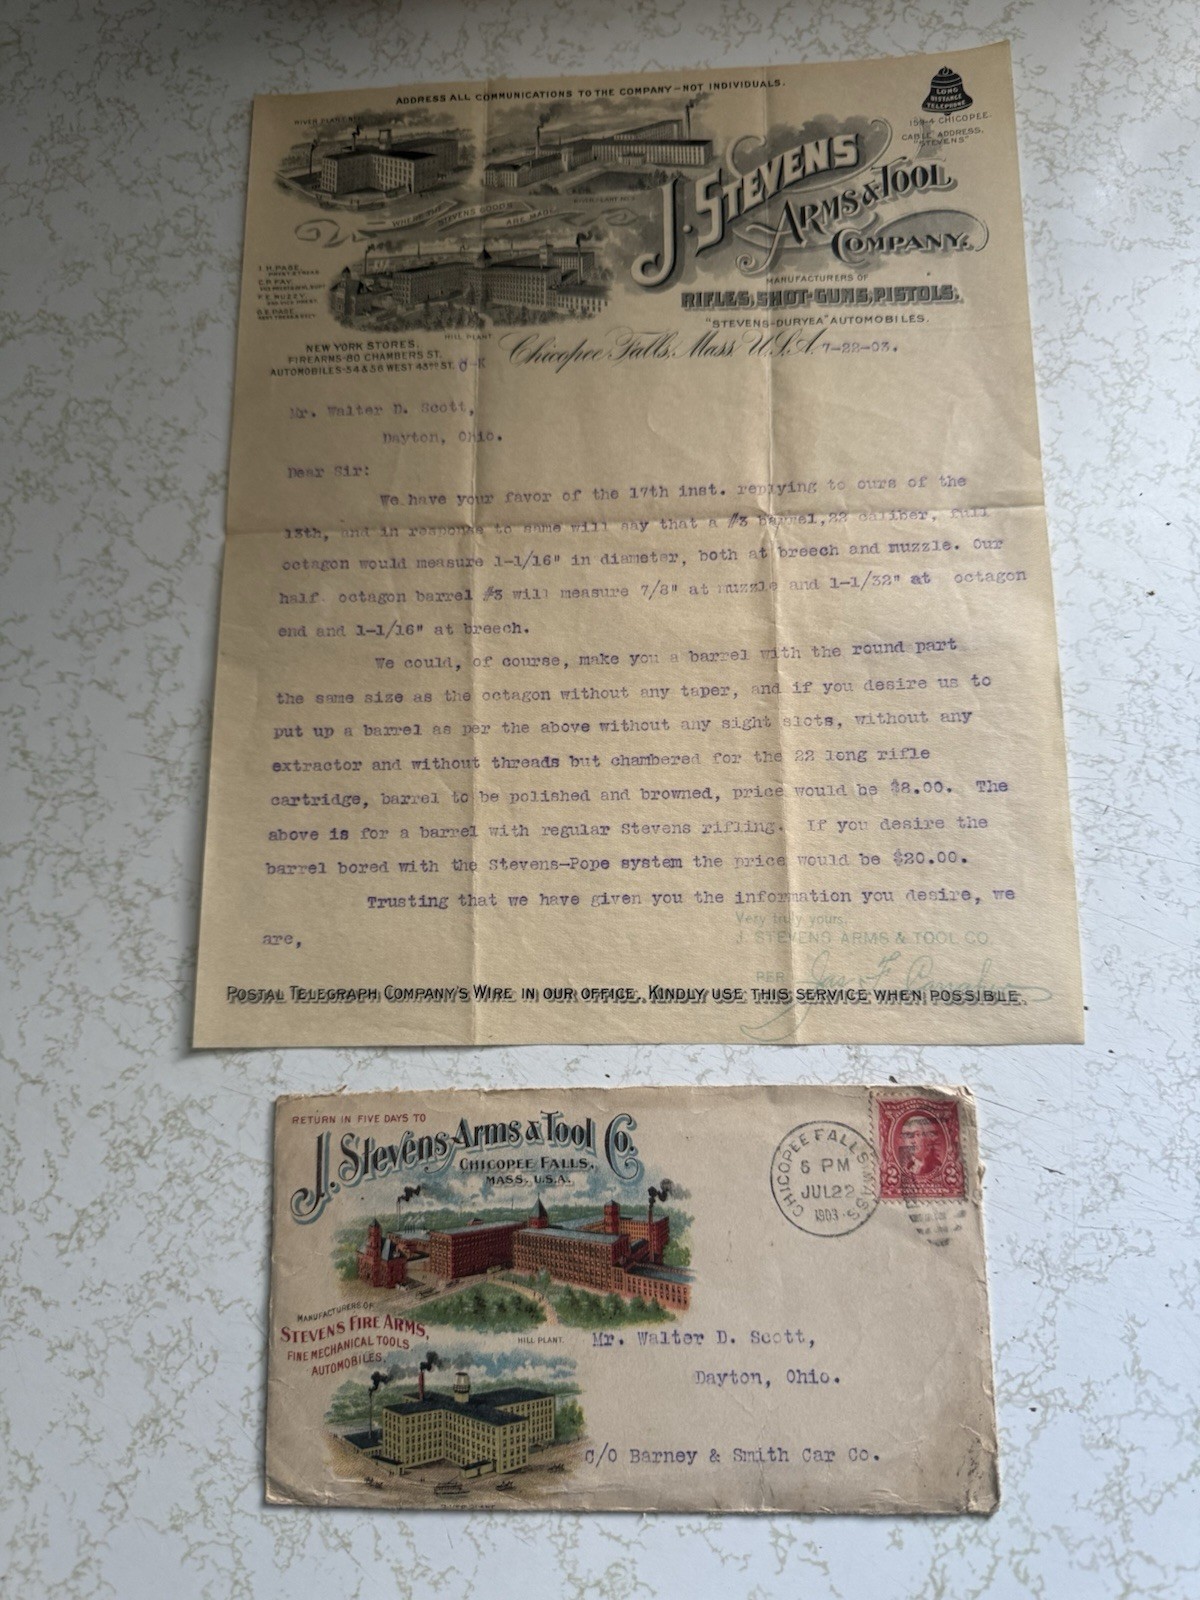 ADDRESS ALL COMMUNICATIONS TO THE COMPANY—NOT INDIVIDUALS.
LONG
DISTANCE
TELEPHONE
CHICOPEE.
CABLE ADDRESS,
"STEVENS"
J. STEVENS
ARMS & TOOL
COMPANY.
WHERE THE STEVENS GOODS ARE MADE
MANUFACTURERS OF
RIFLES, SHOT-GUNS, PISTOLS.
"STEVENS-DURYEA" AUTOMOBILES.
I. H. PAGE
C. P. FAY
HILL PLANT
NEW YORK STORES,
FIREARMS-80 CHAMBERS ST.
AUTOMOBILES-54 & 56 WEST 43RD ST. O-K
Chicopee Falls, Mass. U.S.A. 7-22-03.
Mr. Walter D. Scott,
Dayton, Ohio.
Dear Sir:
We have your favor of the 17th inst. replying to ours of the
13th, and in response to same will say that a #3 barrel,22 caliber, full
octagon would measure 1-1/16" in diameter, both at breech and muzzle. Our
half octagon barrel #3 will measure 7/8" at muzzle and 1-1/32" at octagon
end and 1-1/16" at breech.
We could, of course, make you a barrel with the round part
the same size as the octagon without any taper, and if you desire us to
put up a barrel as per the above without any sight slots, without any
extractor and without threads but chambered for the 22 long rifle
cartridge, barrel to be polished and browned, price would be $8.00. The
above is for a barrel with regular Stevens rifling. If you desire the
barrel bored with the Stevens-Pope system the price would be $20.00.
Trusting that we have given you the information you desire, we
are,
Very truly yours,
J. STEVENS ARMS & TOOL CO.
PER
POSTAL TELEGRAPH COMPANY'S WIRE IN OUR OFFICE. KINDLY USE THIS SERVICE WHEN POSSIBLE.
RETURN IN FIVE DAYS TO
J. Stevens Arms & Tool Co.
CHICOPEE FALLS,
MASS. U.S.A.
CHICOPEE FALLS MASS
6 PM
JUL 22
1903
MANUFACTURERS OF
STEVENS FIRE ARMS,
FINE MECHANICAL TOOLS
AUTOMOBILES,
HILL PLANT.
Mr. Walter D. Scott,
Dayton, Ohio.
C/O Barney & Smith Car Co.